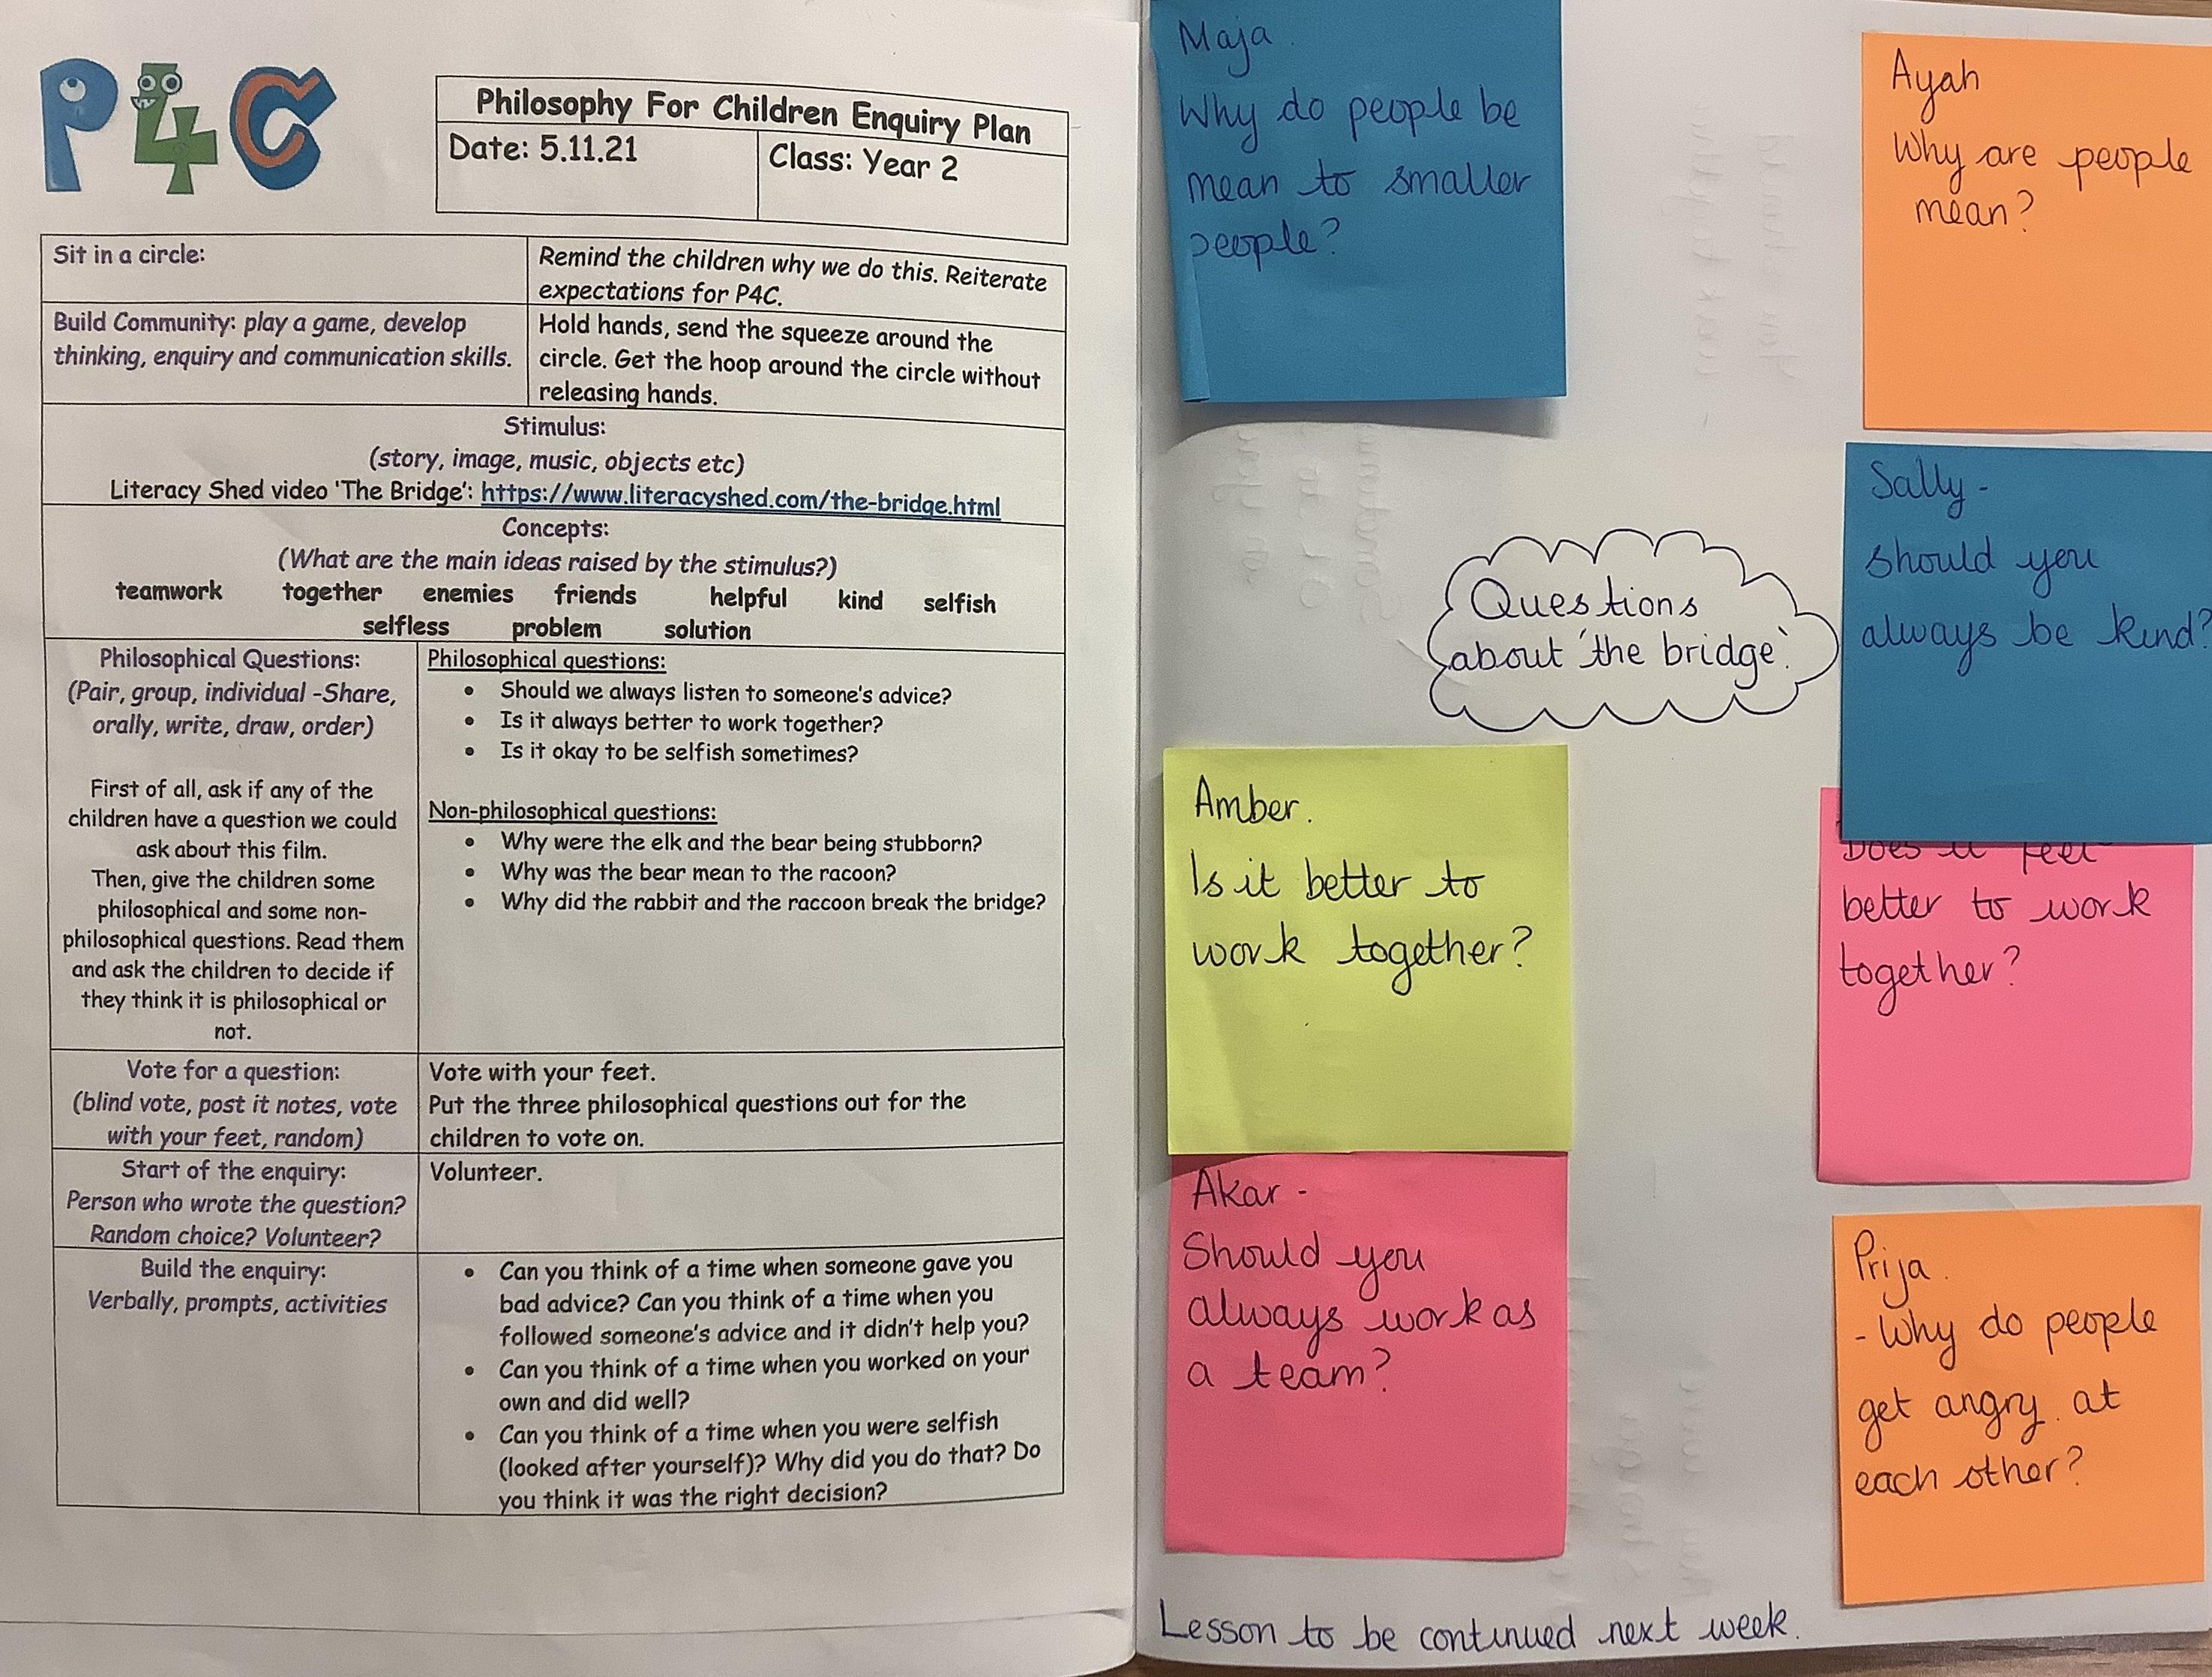 P4C
Philosophy For Children Enquiry Plan
Date: 5.11.21
Class: Year 2
Sit in a circle:
Remind the children why we do this. Reiterate
expectations for P4C.
Build Community: play a game, develop
thinking, enquiry and communication skills.
Hold hands, send the squeeze around the
circle. Get the hoop around the circle without
releasing hands.
Stimulus:
(story, image, music, objects etc)
Literacy Shed video 'The Bridge': https://www.literacyshed.com/the-bridge.html
Concepts:
(What are the main ideas raised by the stimulus?)
teamwork together enemies friends helpful kind selfish
selfless problem solution
Philosophical Questions:
(Pair, group, individual -Share,
orally, write, draw, order)
First of all, ask if any of the
children have a question we could
ask about this film.
Then, give the children some
philosophical and some non-
philosophical questions. Read them
and ask the children to decide if
they think it is philosophical or
not.
Philosophical questions:
• Should we always listen to someone's advice?
• Is it always better to work together?
• Is it okay to be selfish sometimes?
Non-philosophical questions:
• Why were the elk and the bear being stubborn?
• Why was the bear mean to the racoon?
• Why did the rabbit and the raccoon break the bridge?
Vote for a question:
(blind vote, post it notes, vote
with your feet, random)
Vote with your feet.
Put the three philosophical questions out for the
children to vote on.
Start of the enquiry:
Person who wrote the question?
Random choice? Volunteer?
Volunteer.
Build the enquiry:
Verbally, prompts, activities
• Can you think of a time when someone gave you
bad advice? Can you think of a time when you
followed someone's advice and it didn't help you?
• Can you think of a time when you worked on your
own and did well?
• Can you think of a time when you were selfish
(looked after yourself)? Why did you do that? Do
you think it was the right decision?
Maja
Why do people be
mean to smaller
people?
Ayah
Why are people
mean?
Questions
about 'the bridge'
Sally -
should you
always be kind?
Amber.
Is it better to
work together?
Does it feel
better to work
together?
Akar -
Should you
always work as
a team?
Prija.
- Why do people
get angry at
each other?
Lesson to be continued next week.